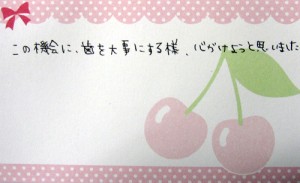 この機会に、歯を大事にする様、心がけようと思いました